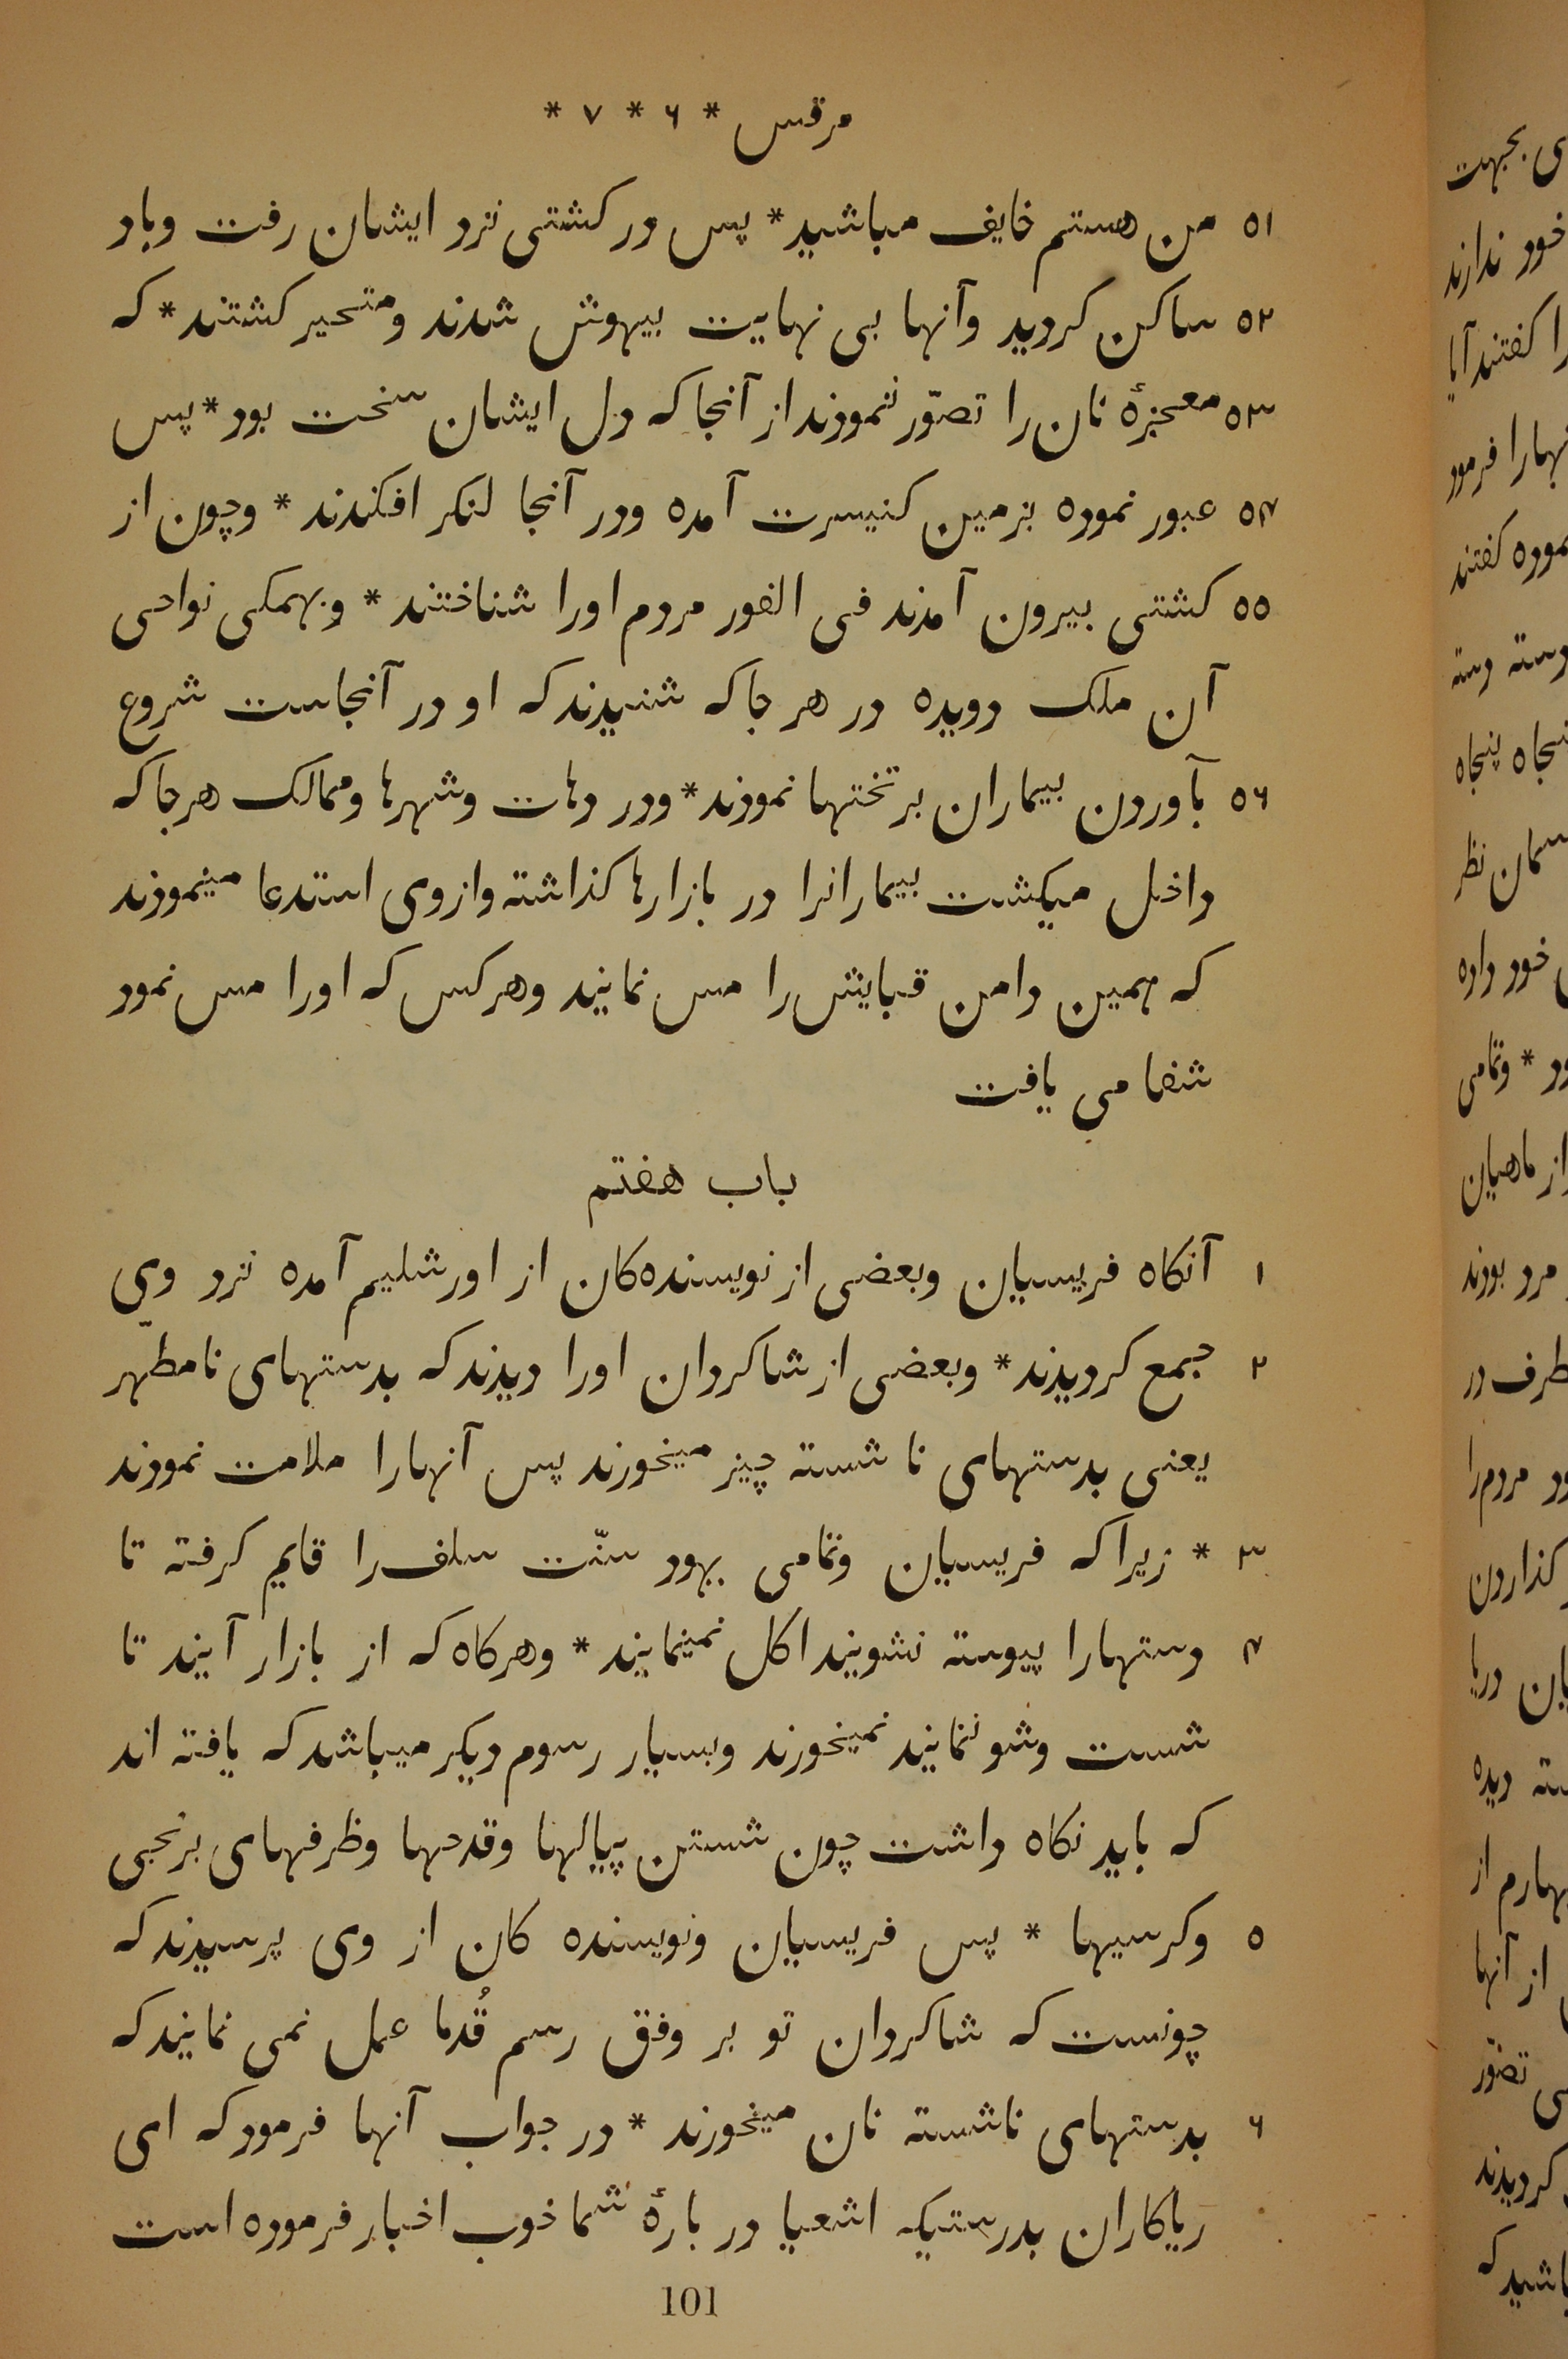 مرقس * ۶ * ۷ *
۵۱ من هستم خایف مباشید * پس در کشتی نزد ایشان رفت وباد
۵۲ ساکن کردید وآنها بی نهایت بیهوش شدند ومتحیر کشتند * که
۵۳ معجزهٔ نان را تصوّر ننمودند از آنجا که دل ایشان سخت بود * پس
۵۴ عبور نموده بزمین کنیسرت آمده ودر آنجا لنکر افکندند * وچون از
۵۵ کشتی بیرون آمدند فی الفور مردم اورا شناختند * وبهمکی نواحی
آن ملک دویده در هر جا که شنیدند که او در آنجاست شروع
۵۶ بآوردن بیماران بر تختها نمودند * ودر دهات وشهرها وممالک هر جا که
داخل میکشت بیمارانرا در بازارها کذاشته وازوی استدعا مینمودند
که همین دامن قبایش را مس نمایند وهر کس که اورا مس نمود
شفا می یافت
باب هفتم
۱ آنکاه فریسیان وبعضی از نویسنده‌کان از اورشلیم آمده نزد وی
۲ جمع کردیدند * وبعضی از شاکردان اورا دیدند که بدستهای نامطهّر
یعنی بدستهای نا شسته چیز میخورند پس آنهارا ملامت نمودند
۳ * زیرا که فریسیان وتمامی یهود سنّت سلف را قایم کرفته تا
۴ دستهارا پیوسته نشویند اکل نمینمایند * وهرکاه که از بازار آیند تا
شست وشو ننمایند نمیخورند وبسیار رسوم دیکر میباشد که یافته اند
که باید نکاه داشت چون شستن پیالها وقدحها وظرفهای برنجی
۵ وکرسیها * پس فریسیان ونویسنده کان از وی پرسیدند که
چونست که شاکردان تو بر وفق رسم قُدما عمل نمی نمایند که
۶ بدستهای ناشسته نان میخورند * در جواب آنها فرمود که ای
ریاکاران بدرستیکه اشعیا در بارهٔ شما خوب اخبار فرموده است
101
ی بجهت
خود ندارند
را کفتند آیا
نهارا فرمود
نموده کفتند
دسته دسته
پنجاه پنجاه
سمان نظر
خود داده
ود * وتمامی
از ماهیان
مرد بودند
طرف در
ود مردم را
کذاردن
یان دریا
سته دیده
چهارم از
از آنها
تصوّر
کردیدند
باشید که